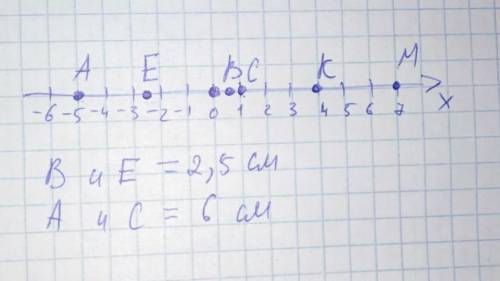 A E B C K M
-6 -5 -4 -3 -2 -1 0 1 2 3 4 5 6 7 x
В и Е = 2,5 см
А и С = 6 см